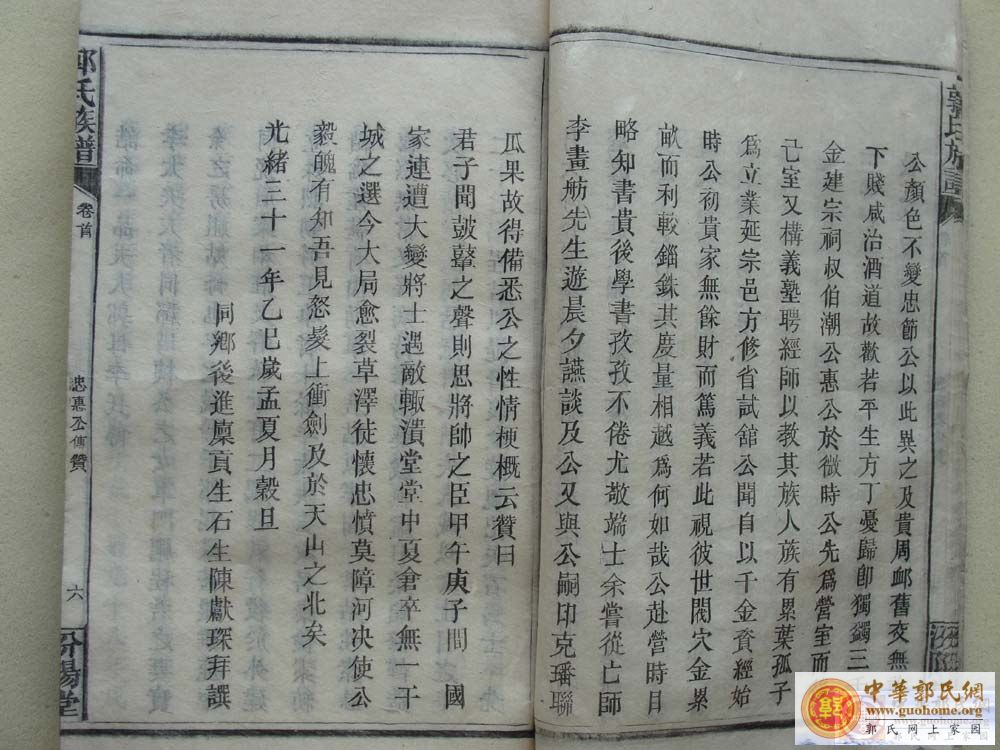 郭氏族譜
公顏色不變忠節公以此異之及貴周卹舊交無
下賤咸治酒道故歡若平生方丁憂歸卽獨蠲三
金建宗祠叔伯潮公惠公於微時公先爲營室而
己室又構義塾聘經師以教其族人族有累葉孤子
爲立業延宗邑方修省試舘公聞自以千金資經始
時公初貴家無餘財而篤義若此視彼世閥穴金累
畝而利較錙銖其度量相越爲何如哉公赴營時目
略知書貴後學書孜孜不倦尤敬端士余嘗從亡師
李畫舫先生遊晨夕讌談及公又與公嗣印克璠聯
瓜果故得備悉公之性情梗概云贊曰
君子聞鼓鼙之聲則思將帥之臣甲午庚子間　國
家連遭大變將士遇敵輙潰堂堂中夏倉卒無一干
城之選今大局愈裂草澤徒懷忠憤莫障河決使公
毅魄有知吾見怒髮上衝劍及於天山之北矣
光緒三十一年乙巳歲孟夏月穀旦
同鄉後進廩貢生石生陳獻琛拜譔
郭氏族譜
卷首
忠惠公傳贊
六
汾陽堂
中華郭氏網
http://www.guohome.org
郭氏網上家園